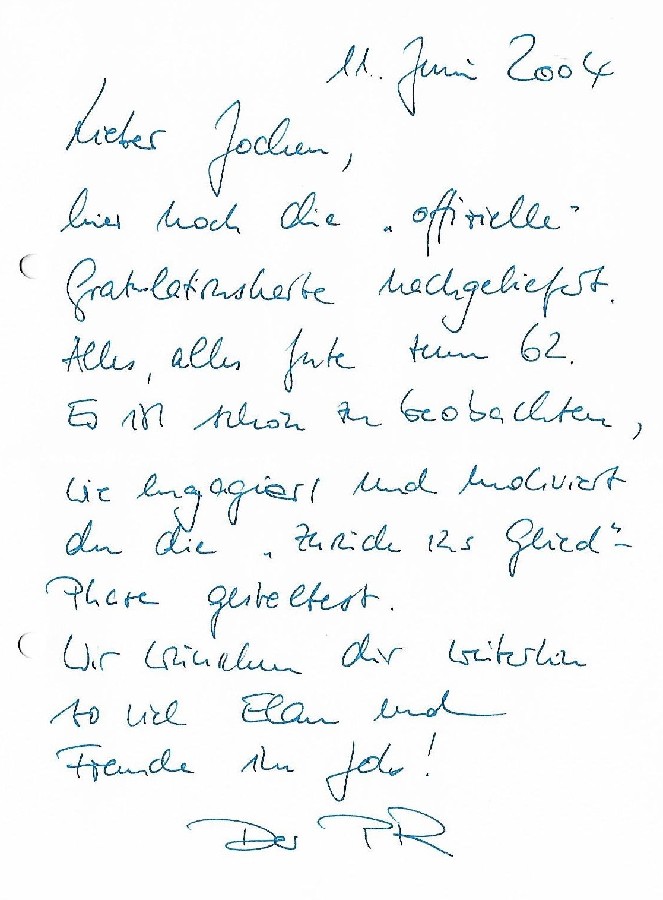 11. Juni 2004
Lieber Jochen,
hier noch die „offizielle“
Gratulationskarte nachgeliefert.
Alles, alles gute zum 62.
Es ist schön zu beobachten,
wie engagiert und motiviert
du die „Zurück ins Glied“-
Phase gestaltest.
Wir wünschen dir weiterhin
so viel Elan und
Freude im Job!
Der PR